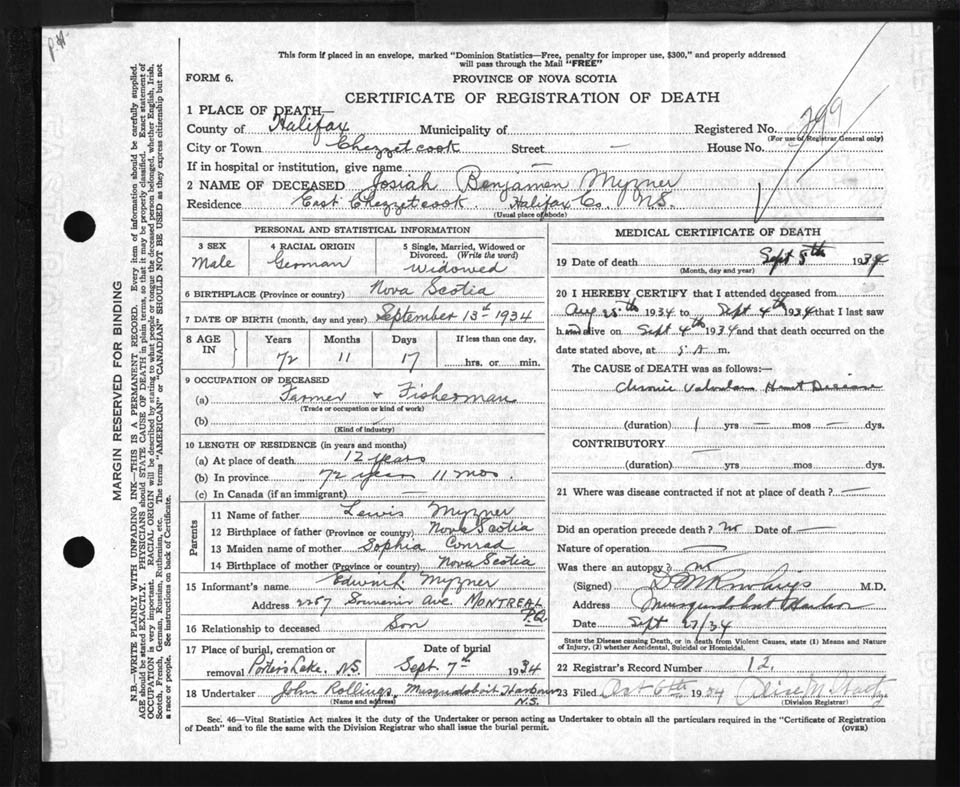 P.H.
MARGIN RESERVED FOR BINDING
N.B.—WRITE PLAINLY WITH UNFADING INK—THIS IS A PERMANENT RECORD. Every item of information should be carefully supplied.
AGE should be stated EXACTLY. PHYSICIANS should STATE CAUSE OF DEATH in plain terms, so that it may be properly classified. Exact statement of
OCCUPATION is very important. RACIAL ORIGIN will be described by stating to what people or tongue the deceased person belonged, whether English, Irish,
Scotch, French, German, Russian, Ruthenian, etc. The terms "AMERICAN" or "CANADIAN" SHOULD NOT BE USED as they express citizenship but not
a race or people. See instructions on back of Certificate.
This form if placed in an envelope, marked "Dominion Statistics—Free, penalty for improper use, $300," and properly addressed
will pass through the Mail "FREE"
FORM 6. PROVINCE OF NOVA SCOTIA
CERTIFICATE OF REGISTRATION OF DEATH
1 PLACE OF DEATH—
County of Halifax Municipality of Registered No. 299
(For use of Registrar General only)
City or Town Chezzetcook Street — House No.
If in hospital or institution, give name —
2 NAME OF DECEASED Josiah Benjamen Myzner
Residence East Chezzetcook Halifax Co. N.S.
(Usual place of abode)
PERSONAL AND STATISTICAL INFORMATION
3 SEX 4 RACIAL ORIGIN 5 Single, Married, Widowed or
Divorced. (Write the word)
Male German Widowed
6 BIRTHPLACE (Province or country) Nova Scotia
7 DATE OF BIRTH (month, day and year) September 13th 1934
8 AGE IN Years Months Days If less than one day,
72 11 17 hrs. or min.
9 OCCUPATION OF DECEASED
(a) Farmer & Fisherman
(Trade or occupation or kind of work)
(b)
(Kind of industry)
10 LENGTH OF RESIDENCE (in years and months)
(a) At place of death 12 years
(b) In province 72 years 11 mos.
(c) In Canada (if an immigrant) —
Parents
11 Name of father Lewis Myzner
12 Birthplace of father (Province or country) Nova Scotia
13 Maiden name of mother Sophia Conrad
14 Birthplace of mother (Province or country) Nova Scotia
15 Informant's name Edward Myzner
Address 2267 Souvenir Ave. MONTREAL
P.Q.
16 Relationship to deceased Son
17 Place of burial, cremation or Date of burial
removal Porters Lake. N.S. Sept. 7th 1934
18 Undertaker John Rollings, Musquodoboit Harbour
(Name and address) N.S.
MEDICAL CERTIFICATE OF DEATH
19 Date of death Sept 5th 1934
(Month, day and year)
20 I HEREBY CERTIFY that I attended deceased from
Aug 25th 1934 to Sept 4th 1934 that I last saw
h alive on Sept 4th 1934 and that death occurred on
date stated above, at 5 A m.
The CAUSE OF DEATH was as follows:—
Chronic Valvular Heart Disease
(duration) 1 yrs — mos — dys.
CONTRIBUTORY —
(duration) yrs mos dys.
21 Where was disease contracted if not at place of death? —
Did an operation precede death? no Date of —
Nature of operation —
Was there an autopsy? no
(Signed) M.D.
Address Musquodoboit Harbor
Date Sept 27/34
State the Disease causing Death, or in death from Violent Causes, state (1) Means and Nature
of Injury, (2) whether Accidental, Suicidal or Homicidal.
22 Registrar's Record Number 12.
23 Filed Oct 6th 1934
(Division Registrar)
Sec. 46—Vital Statistics Act makes it the duty of the Undertaker or person acting as Undertaker to obtain all the particulars required in the "Certificate of Registration
of Death" and to file the same with the Division Registrar who shall issue the burial permit. (OVER)